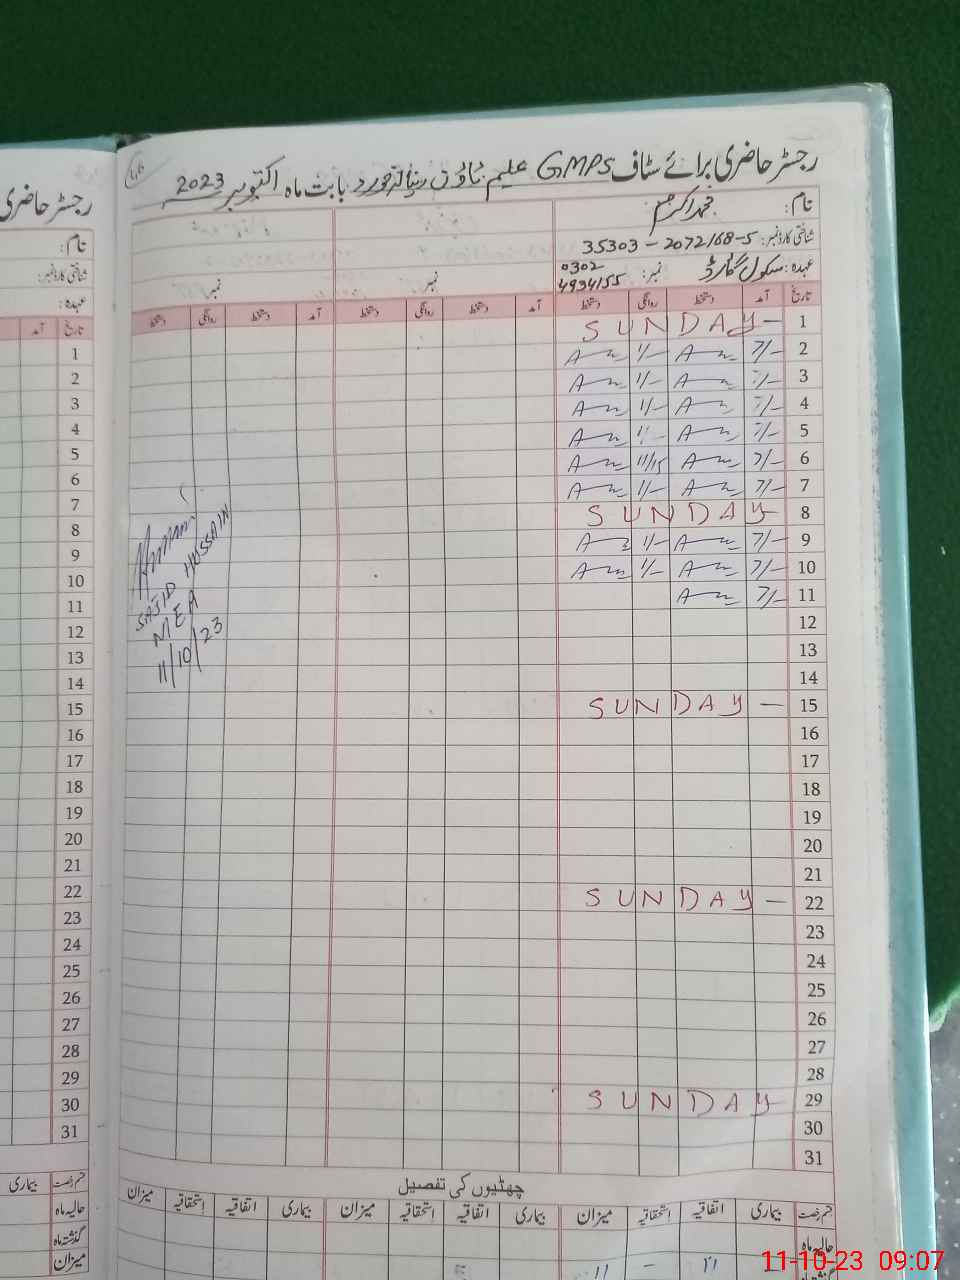 رجسٹر حاضری برائے سٹاف GMPS علیم ٹاؤن رینالہ خورد بابت ماہ اکتوبر 2023
نام: محمد اکرم
شناختی کارڈ نمبر: 35303-2072168-5
عہدہ: سکول گارڈ نمبر: 0302
4934155
نمبر
نمبر
تاریخ آمد دستخط روانگی دستخط آمد دستخط روانگی دستخط آمد دستخط روانگی دستخط
1 SUNDAY
2 7/- 1/-
3 7/- 1/-
4 7/- 1/-
5 7/-
6 7/- 11/15
7 7/- 1/-
8 SUNDAY
9 7/- 1/-
10 7/- 1/-
11 7/-
12
13
14
15 SUNDAY —
16
17
18
19
20
21
22 SUNDAY —
23
24
25
26
27
28
29 SUNDAY
30
31
SAJID HUSSAIN
MEA
11/10/23
چھٹیوں کی تفصیل
قسم رخصت بیماری اتفاقیہ استحقاقیہ میزان بیماری اتفاقیہ استحقاقیہ میزان بیماری اتفاقیہ استحقاقیہ میزان
حالیہ ماہ
رجسٹر حاضری
نام:
شناختی کارڈ نمبر:
عہدہ:
تاریخ آمد
1
2
3
4
5
6
7
8
9
10
11
12
13
14
15
16
17
18
19
20
21
22
23
24
25
26
27
28
29
30
31
قسم رخصت بیماری
حالیہ ماہ
گذشتہ ماہ
میزان
11-10-23 09:07